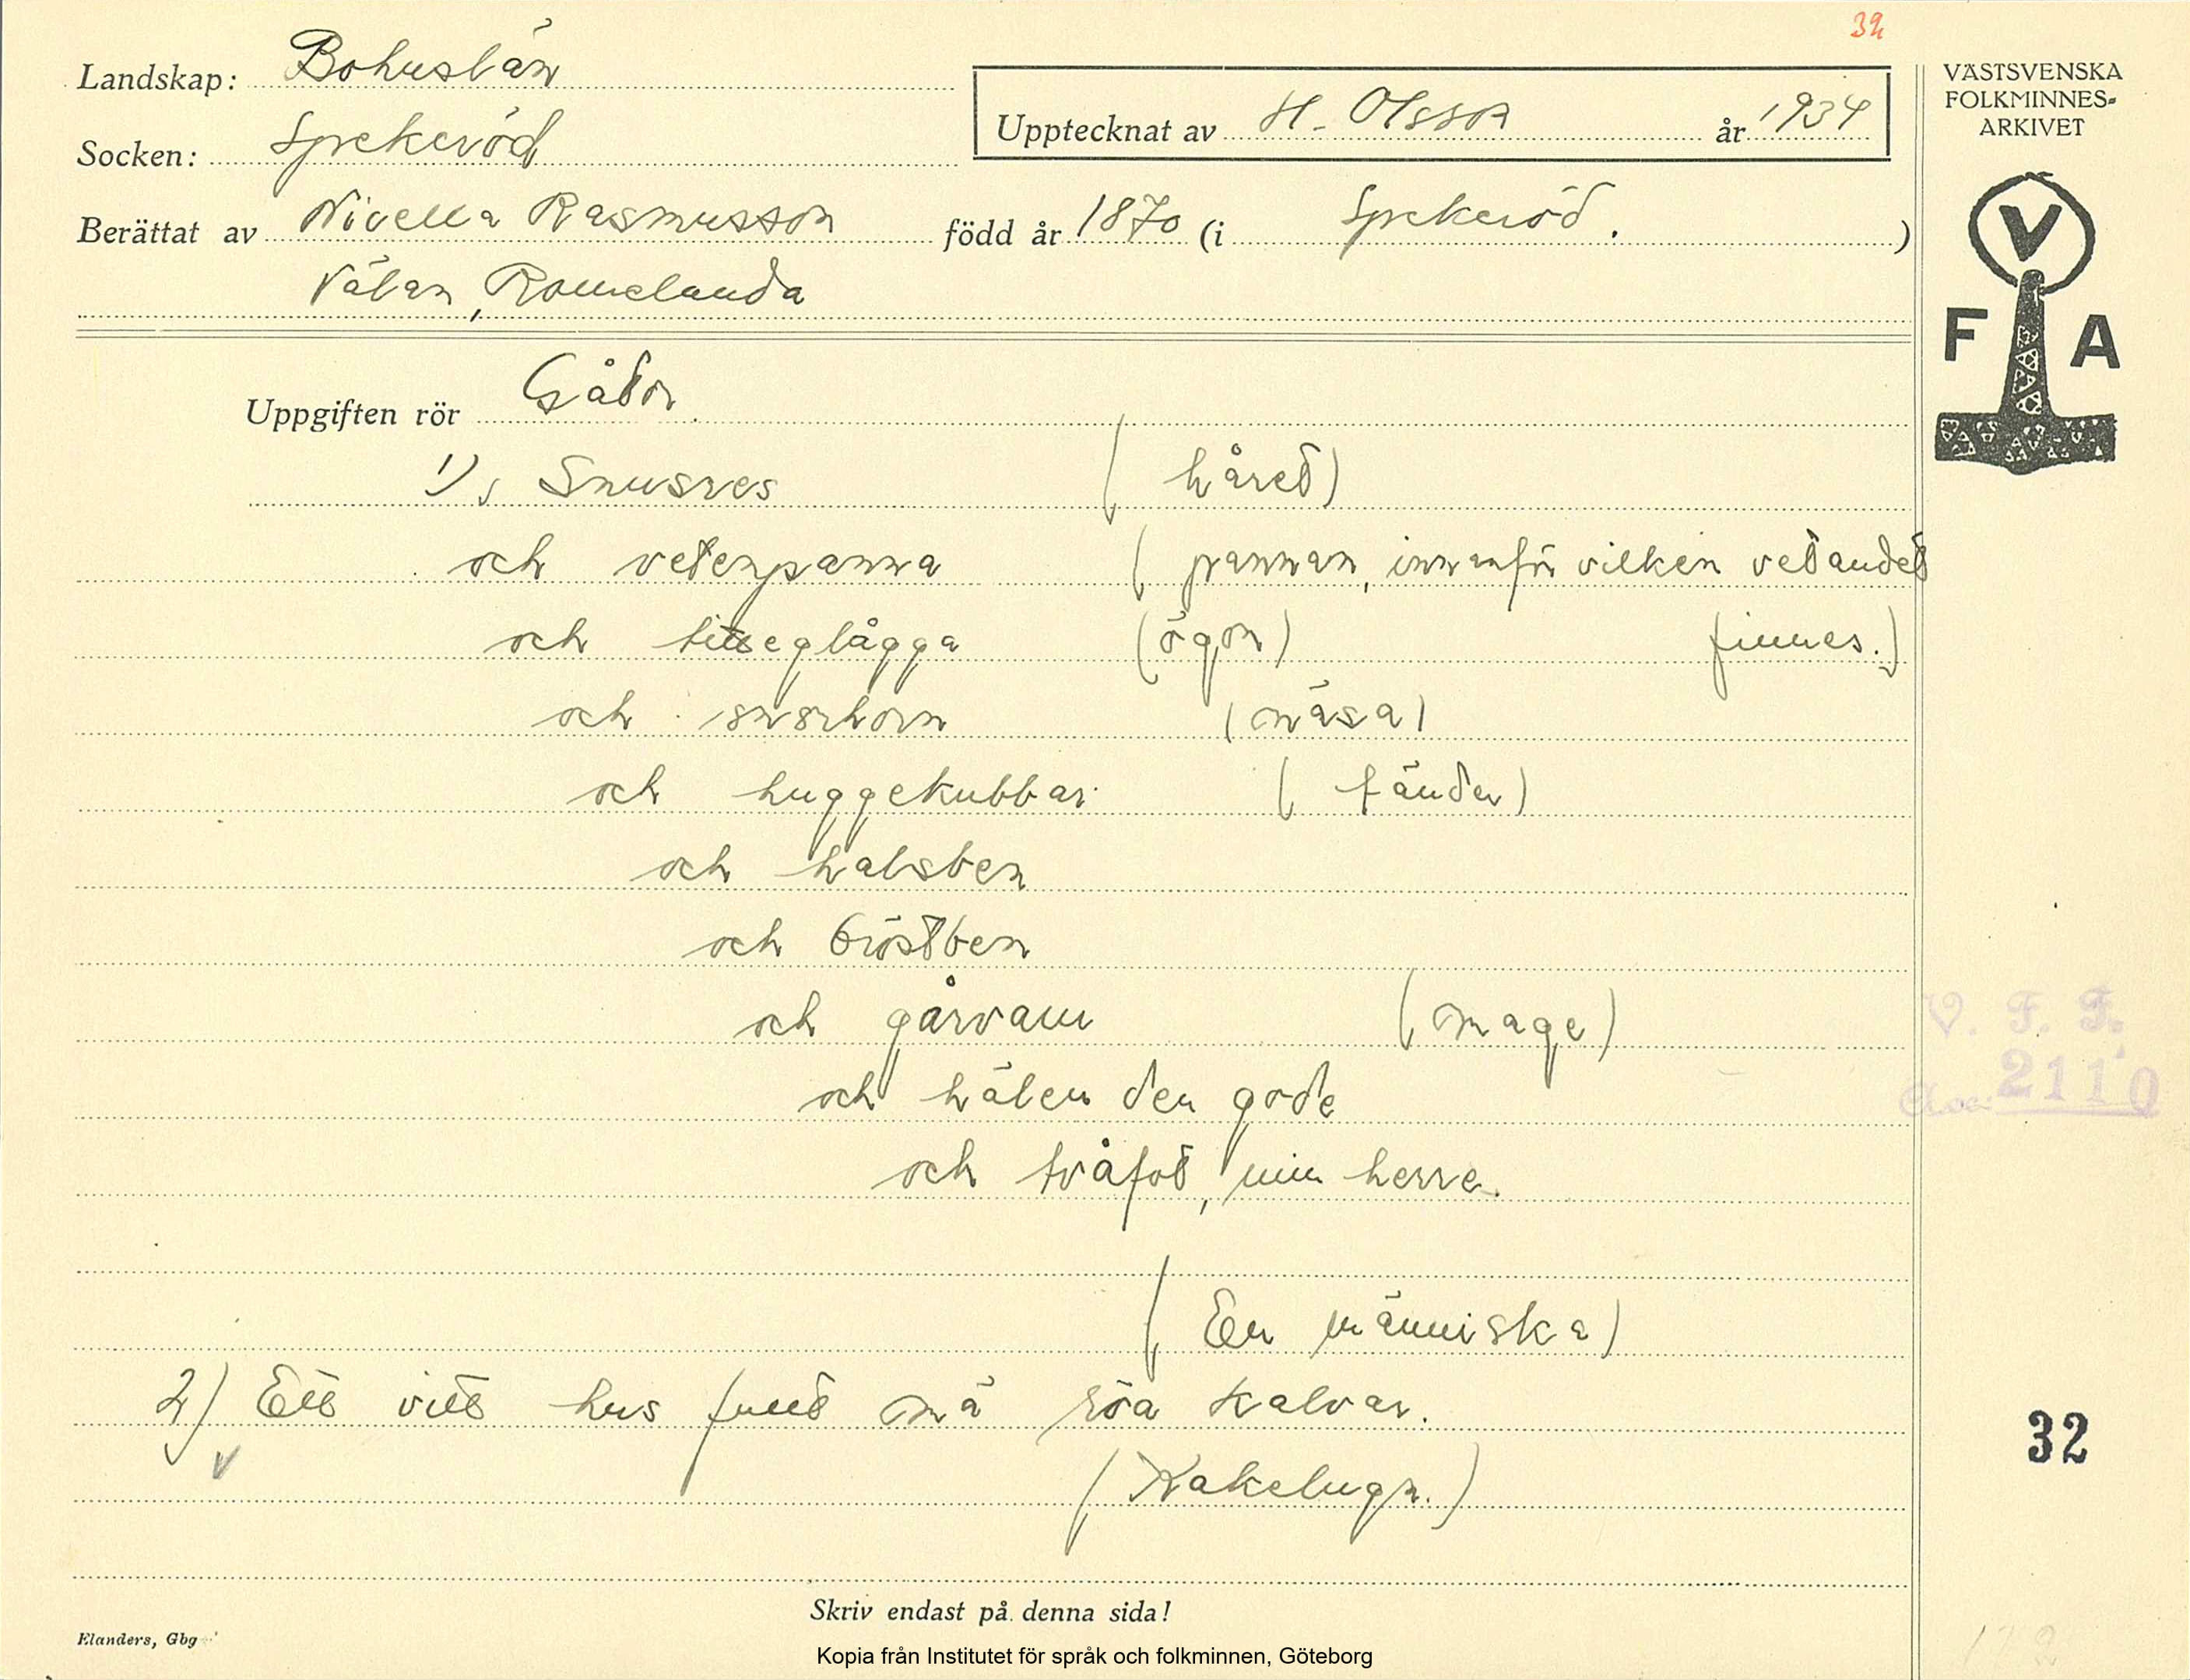 32
Landskap: Bohuslän
Upptecknat av H. Olsson år 1934
Socken: Spekeröd
Berättat av Nivella Rasmusson född år 1870 (i Spekeröd.)
Välan, Romelanda
VÄSTSVENSKA
FOLKMINNES-
ARKIVET
V
F A
Uppgiften rör Gåtor
1) Snusres (håret)
och vetenpanna (pannan, innanför vilken vetandet
finnes.)
och titteglågga (ögon)
och snorhorn (näsa)
och huggekubbar (tänder)
och halsben
och bröstben
och gårvam (mage)
och hälen den gode
och tvåfot, min herre.
(En människa)
2) Ett vitt hus fullt mä röa kalvar.
(Kakelugn.)
V. F. F.
2110
32
Skriv endast på denna sida!
Elanders, Gbg
Kopia från Institutet för språk och folkminnen, Göteborg